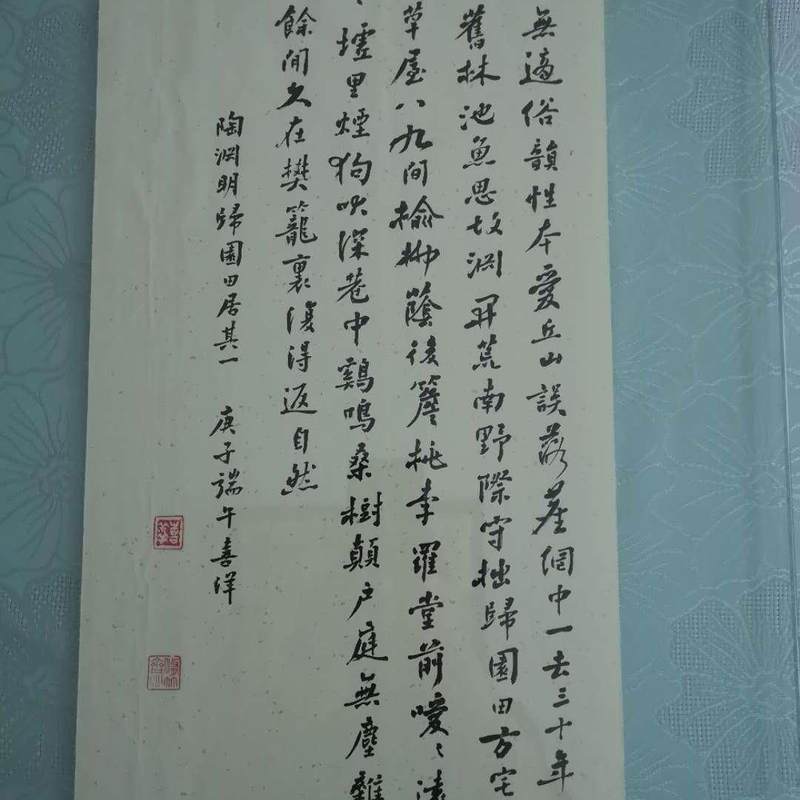 無適俗韻性本愛丘山誤落塵網中一去三十年
舊林池魚思故淵開荒南野際守拙歸園田方宅
草屋八九間榆柳蔭後簷桃李羅堂前曖〻遠
〻墟里煙狗吠深巷中鷄鳴桑樹顛戶庭無塵雜
餘閒久在樊籠裏復得返自然
陶淵明歸園田居其一 庚子端午喜洋